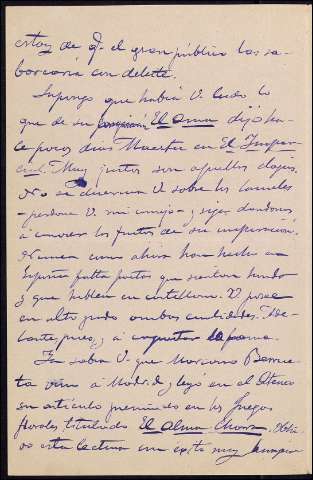 estoy de q. el gran público las sa-
borearía con deleite.
Supongo que habrá V. leido lo
que de su El Ama dijo ha-
ce pocos dias Maeztu en El Impar-
cial. Muy justos son aquellos elogios.
No se duerma V. sobre los laureles
- perdone V. mi consejo - y siga dandonos
á conocer los frutos de su inspiración.
Nunca como ahora han hecho en
España falta poetas que sientan hondo
y que hablen en castellano. V. posee
en alto grado ambas cualidades. Ade-
lante, pues, y á conquistar la fama.
Ya sabra V. que Mariano
vino á Madrid y leyó en el Ateneo
su artículo premiado en los Juegos
florales titulado El alma charra. Obtu-
vo esta lectura un éxito muy